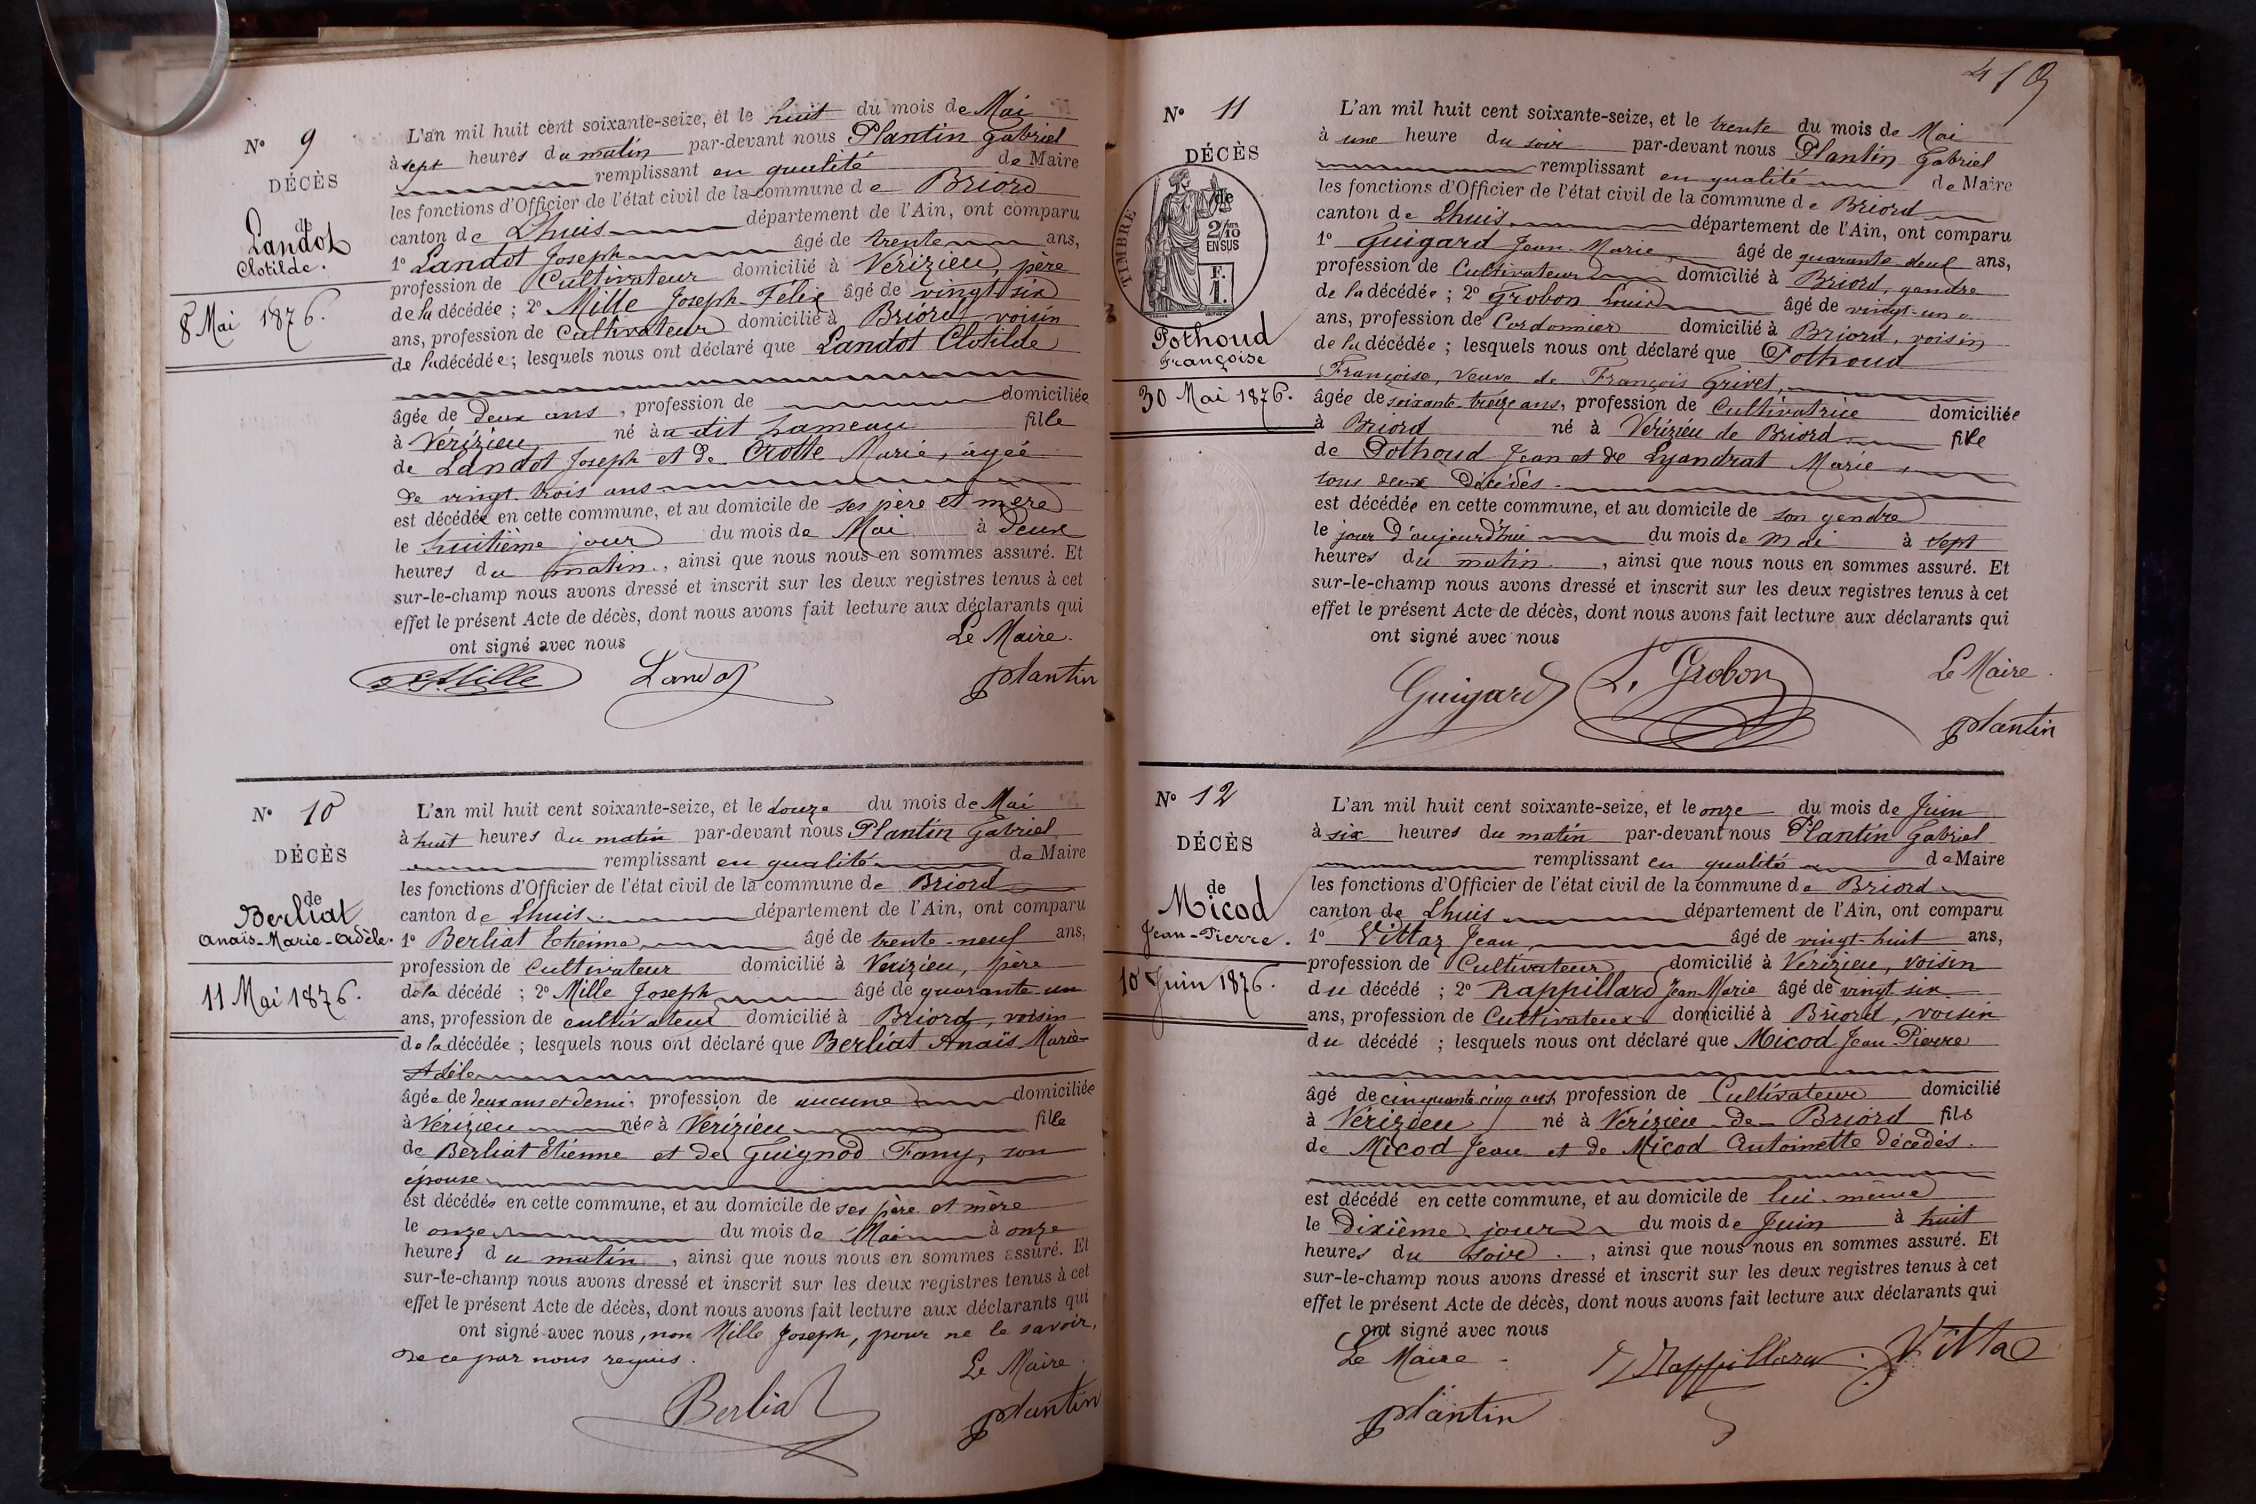 N° 9
DÉCÈS
de
Landot
Clotilde.
8 Mai 1876.
L'an mil huit cent soixante-seize, et le huit du mois de Mai
à sept heures du matin par-devant nous Plantin Gabriel
remplissant en qualité de Maire
les fonctions d'Officier de l'état civil de la commune de Briord
canton de Lhuis département de l'Ain, ont comparu
1° Landot Joseph âgé de trente ans,
profession de Cultivateur domicilié à Vérizieu, père
de la décédée ; 2° Mille Joseph-Félix âgé de vingt six
ans, profession de Cultivateur domicilié à Briord voisin
de la décédée ; lesquels nous ont déclaré que Landot Clotilde
âgée de Deux ans, profession de domiciliée
à Vérizieu né à u dit hameau fille
de Landot Joseph et de Crotte Marie, âgée
de vingt-trois ans
est décédée en cette commune, et au domicile de ses père et mère
le huitième jour du mois de Mai à Deux
heures du matin, ainsi que nous nous en sommes assuré. Et
sur-le-champ nous avons dressé et inscrit sur les deux registres tenus à cet
effet le présent Acte de décès, dont nous avons fait lecture aux déclarants qui
ont signé avec nous
Le Maire.
Mille Landot Plantin
N° 10
DÉCÈS
de
Berliat
Anaïs-Marie-Adèle.
11 Mai 1876.
L'an mil huit cent soixante-seize, et le douze du mois de Mai
à huit heures du matin par-devant nous Plantin Gabriel
remplissant en qualité de Maire
les fonctions d'Officier de l'état civil de la commune de Briord
canton de Lhuis département de l'Ain, ont comparu
1° Berliat Etienne, âgé de trente-neuf ans,
profession de Cultivateur domicilié à Verizieu, père
de la décédé ; 2° Mille Joseph âgé de quarante-un
ans, profession de cultivateur domicilié à Briord, voisin
de la décédée ; lesquels nous ont déclaré que Berliat Anaïs Marie-
Adèle
âgée de deux ans et demi, profession de aucune domiciliée
à Vérizieu née à Vérizieu fille
de Berliat Etienne et de Guignod Fany, son
épouse
est décédée en cette commune, et au domicile de ses père et mère
le onze du mois de Mai à onze
heures du matin, ainsi que nous nous en sommes assuré. Et
sur-le-champ nous avons dressé et inscrit sur les deux registres tenus à cet
effet le présent Acte de décès, dont nous avons fait lecture aux déclarants qui
ont signé avec nous, non Mille Joseph, pour ne le savoir,
de ce par nous requis.
Le Maire.
Berliat Plantin
419
N° 11
DÉCÈS
de
TIMBRE
2/10
EN SUS
F.
1.
Pothoud
Françoise
30 Mai 1876.
L'an mil huit cent soixante-seize, et le trente du mois de Mai
à une heure du soir par-devant nous Plantin Gabriel
remplissant en qualité de Maire
les fonctions d'Officier de l'état civil de la commune de Briord
canton de Lhuis, département de l'Ain, ont comparu
1° Guigard Jean-Marie, âgé de quarante deux ans,
profession de Cultivateur domicilié à Briord, gendre
de la décédée ; 2° Grobon Louis âgé de vingt-un
ans, profession de Cordonnier domicilié à Briord, voisin
de la décédée ; lesquels nous ont déclaré que Pothoud
Françoise, veuve de François Grivet,
âgée de soixante-treize ans, profession de Cultivatrice domiciliée
à Briord né à Vérizieu de Briord fille
de Pothoud Jean et de Lyandrat Marie,
tous deux Décédés.
est décédée en cette commune, et au domicile de son gendre
le jour d'aujourd'hui du mois de Mai à sept
heures du matin, ainsi que nous nous en sommes assuré. Et
sur-le-champ nous avons dressé et inscrit sur les deux registres tenus à cet
effet le présent Acte de décès, dont nous avons fait lecture aux déclarants qui
ont signé avec nous
Le Maire.
Guigard L. Grobon Plantin
N° 12
DÉCÈS
de
Micod
Jean-Pierre.
10 Juin 1876.
L'an mil huit cent soixante-seize, et le onze du mois de Juin
à six heures du matin par-devant nous Plantin Gabriel
remplissant en qualité de Maire
les fonctions d'Officier de l'état civil de la commune de Briord
canton de Lhuis département de l'Ain, ont comparu
1° Vittaz Jean, âgé de vingt-huit ans,
profession de Cultivateur domicilié à Vérizieu, voisin
du décédé ; 2° Rappillard Jean-Marie âgé de vingt six
ans, profession de Cultivateur domicilié à Briord, voisin
du décédé ; lesquels nous ont déclaré que Micod Jean-Pierre
âgé de cinquante cinq ans, profession de Cultivateur domicilié
à Vérizieu né à Vérizieu de Briord fils
de Micod Jean et de Micod Antoinette Décédés.
est décédé en cette commune, et au domicile de lui-même
le Dixième jour du mois de Juin à huit
heures du soire, ainsi que nous nous en sommes assuré. Et
sur-le-champ nous avons dressé et inscrit sur les deux registres tenus à cet
effet le présent Acte de décès, dont nous avons fait lecture aux déclarants qui
ont signé avec nous
Le Maire Rappillard Vittaz
Plantin